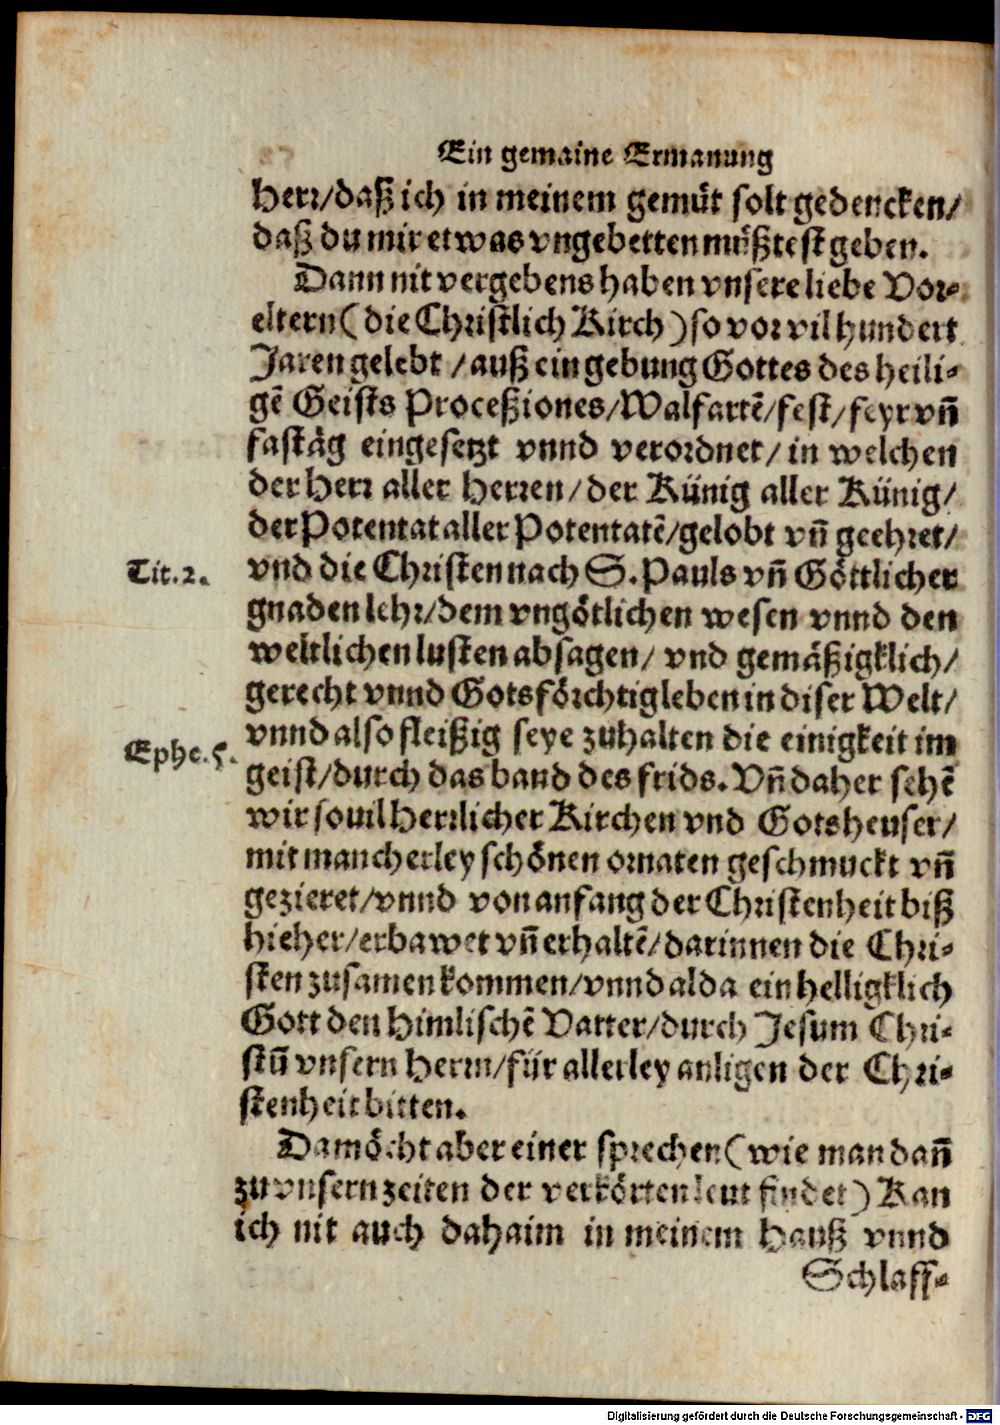 Ein gemaine Ermanung
Herr/daß ich in meinem gemuͤt solt gedencken/
daß du mir etwas vngebetten muͤßtest geben.
Dann nit vergebens haben vnsere liebe Vor-
eltern (die Christlich Kirch) so vor vil hundert
Jaren gelebt / auß eingebung Gottes des heili-
gē Geists Proceßiones/Walfartē/fest/feyr vñ
fastaͤg eingesetzt vnnd verordnet/ in welchen
der Herr aller Herren/ der Kuͤnig aller Kuͤnig/
der Potentat aller Potentatē/gelobt vñ geehret/
Tit.2. vnd die Christen nach S. Pauls vñ Goͤttlicher
gnaden lehr/dem vngoͤtlichen wesen vnnd den
weltlichen lusten absagen/ vnd gemaͤßigklich/
gerecht vnnd Gotsfoͤrchtig leben in diser Welt/
Ephe.5. vnnd also fleißig seye zuhalten die einigkeit im
geist/durch das band des frids. Vñ daher sehē
wir souil Herrlicher Kirchen vnd Gotsheuser/
mit mancherley schoͤnen ornaten geschmuckt vñ
gezieret/vnnd von anfang der Christenheit biß
hieher/erbawet vñ erhaltē/darinnen die Chri-
sten zusamen kommen/vnnd alda einhelligklich
Gott den Himlischē Vatter/durch Jesum Chri-
stū vnsern Herrn/fuͤr allerley anligen der Chri-
stenheit bitten.
Da moͤcht aber einer sprechen (wie man dañ
zu vnsern zeiten der verkoͤrten leut findet) Kan
ich nit auch dahaim in meinem Hauß vnnd
Schlaff-
Digitalisierung gefördert durch die Deutsche Forschungsgemeinschaft - DFG